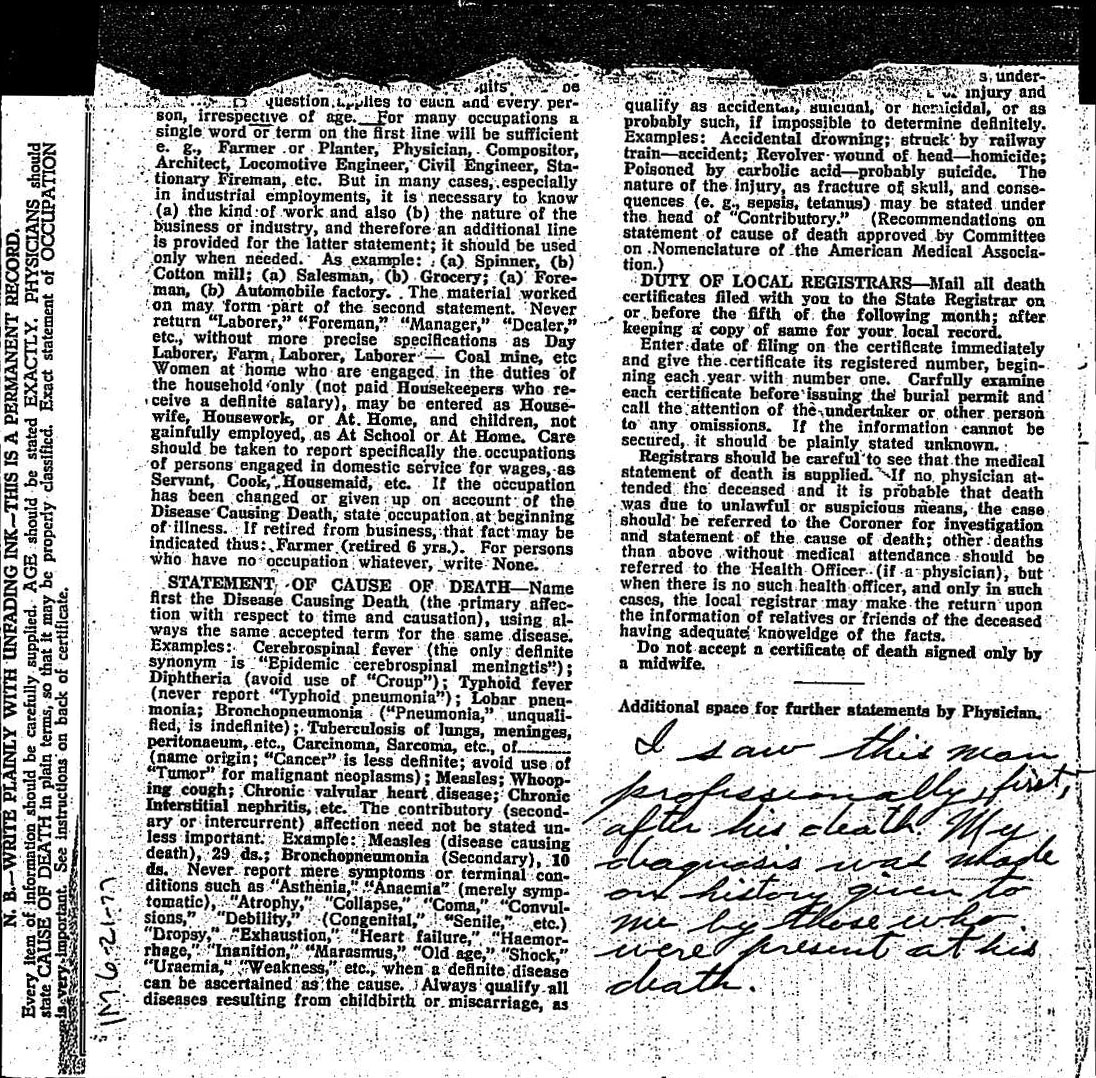 N. B.—WRITE PLAINLY WITH UNFADING INK—THIS IS A PERMANENT RECORD.
Every item of information should be carefully supplied. AGE should be stated EXACTLY. PHYSICIANS should
state CAUSE OF DEATH in plain terms, so that it may be properly classified. Exact statement of OCCUPATION
is very important. See instructions on back of certificate.
1M-6-21-77
question applies to each and every per-
son, irrespective of age. For many occupations a
single word or term on the first line will be sufficient
e. g., Farmer or Planter, Physician, Compositor,
Architect, Locomotive Engineer, Civil Engineer, Sta-
tionary Fireman, etc. But in many cases, especially
in industrial employments, it is necessary to know
(a) the kind of work and also (b) the nature of the
business or industry, and therefore an additional line
is provided for the latter statement; it should be used
only when needed. As example: (a) Spinner, (b)
Cotton mill; (a) Salesman, (b) Grocery; (a) Fore-
man, (b) Automobile factory. The material worked
on may form part of the second statement. Never
return "Laborer," "Foreman," "Manager," "Dealer,"
etc., without more precise specifications as Day
Laborer, Farm Laborer, Laborer — Coal mine, etc
Women at home who are engaged in the duties of
the household only (not paid Housekeepers who re-
ceive a definite salary), may be entered as House-
wife, Housework, or At Home, and children, not
gainfully employed, as At School or At Home. Care
should be taken to report specifically the occupations
of persons engaged in domestic service for wages, as
Servant, Cook, Housemaid, etc. If the occupation
has been changed or given up on account of the
Disease Causing Death, state occupation at beginning
of illness. If retired from business, that fact may be
indicated thus: Farmer (retired 6 yrs.). For persons
who have no occupation whatever, write None.
STATEMENT OF CAUSE OF DEATH—Name
first the Disease Causing Death (the primary affec-
tion with respect to time and causation), using al-
ways the same accepted term for the same disease.
Examples: Cerebrospinal fever (the only definite
synonym is "Epidemic cerebrospinal meningtis");
Diphtheria (avoid use of "Croup"); Typhoid fever
(never report "Typhoid pneumonia"); Lobar pneu-
monia; Bronchopneumonia ("Pneumonia," unquali-
fied, is indefinite); Tuberculosis of lungs, meninges,
peritonaeum, etc., Carcinoma, Sarcoma, etc., of
(name origin; "Cancer" is less definite; avoid use of
"Tumor" for malignant neoplasms); Measles; Whoop-
ing cough; Chronic valvular heart disease; Chronic
Interstitial nephritis, etc. The contributory (second-
ary or intercurrent) affection need not be stated un-
less important. Example: Measles (disease causing
death), 29 ds.; Bronchopneumonia (Secondary), 10
ds. Never report mere symptoms or terminal con-
ditions such as "Asthenia," "Anaemia" (merely symp-
tomatic), "Atrophy," "Collapse," "Coma," "Convul-
sions," "Debility," (Congenital," "Senile," etc.)
"Dropsy," "Exhaustion," "Heart failure," "Haemor-
rhage," "Inanition," "Marasmus," "Old age," "Shock,"
"Uraemia," "Weakness," etc., when a definite disease
can be ascertained as the cause. Always qualify all
diseases resulting from childbirth or miscarriage, as
s, under-
injury and
qualify as accidental, suicidal, or homicidal, or as
probably such, if impossible to determine definitely.
Examples: Accidental drowning; struck by railway
train—accident; Revolver wound of head—homicide;
Poisoned by carbolic acid—probably suicide. The
nature of the injury, as fracture of skull, and conse-
quences (e. g., sepsis, tetanus) may be stated under
the head of "Contributory." (Recommendations on
statement of cause of death approved by Committee
on Nomenclature of the American Medical Associa-
tion.)
DUTY OF LOCAL REGISTRARS—Mail all death
certificates filed with you to the State Registrar on
or before the fifth of the following month; after
keeping a copy of same for your local record.
Enter date of filing on the certificate immediately
and give the certificate its registered number, begin-
ning each year with number one. Carfully examine
each certificate before issuing the burial permit and
call the attention of the undertaker or other person
to any omissions. If the information cannot be
secured, it should be plainly stated unknown.
Registrars should be careful to see that the medical
statement of death is supplied. If no physician at-
tended the deceased and it is probable that death
was due to unlawful or suspicious means, the case
should be referred to the Coroner for investigation
and statement of the cause of death; other deaths
than above without medical attendance should be
referred to the Health Officer (if a physician), but
when there is no such health officer, and only in such
cases, the local registrar may make the return upon
the information of relatives or friends of the deceased
having adequate knoweldge of the facts.
Do not accept a certificate of death signed only by
a midwife.
Additional space for further statements by Physician.
I saw this man
professionally, first,
after his death. My
diagnosis was made
on history given to
me by those who
were present at his
death.